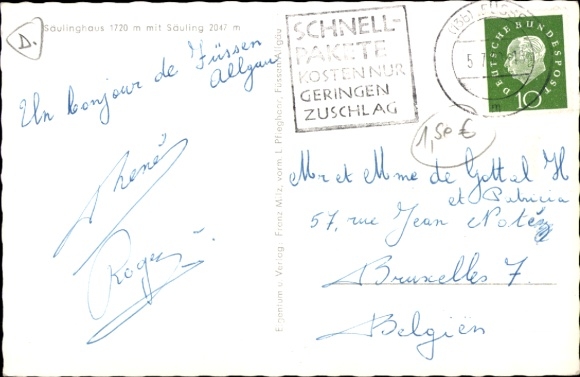 D.
Säulinghaus 1720 m mit Säuling 2047 m
Un bonjour de Füssen
Allgau
Roger
Eigentum u. Verlag Franz Milz, vorm. L. Pfleghart, Füssen/Allgäu
SCHNELL-
PAKETE
KOSTEN NUR
GERINGEN
ZUSCHLAG
(13b) FÜSSEN
5.7.
m
DEUTSCHE BUNDESPOST
10
1,50 €
Mr et Mme de Gottal H
et Patricia
57, rue Jean Notéz
Bruxelles 7.
Belgiën